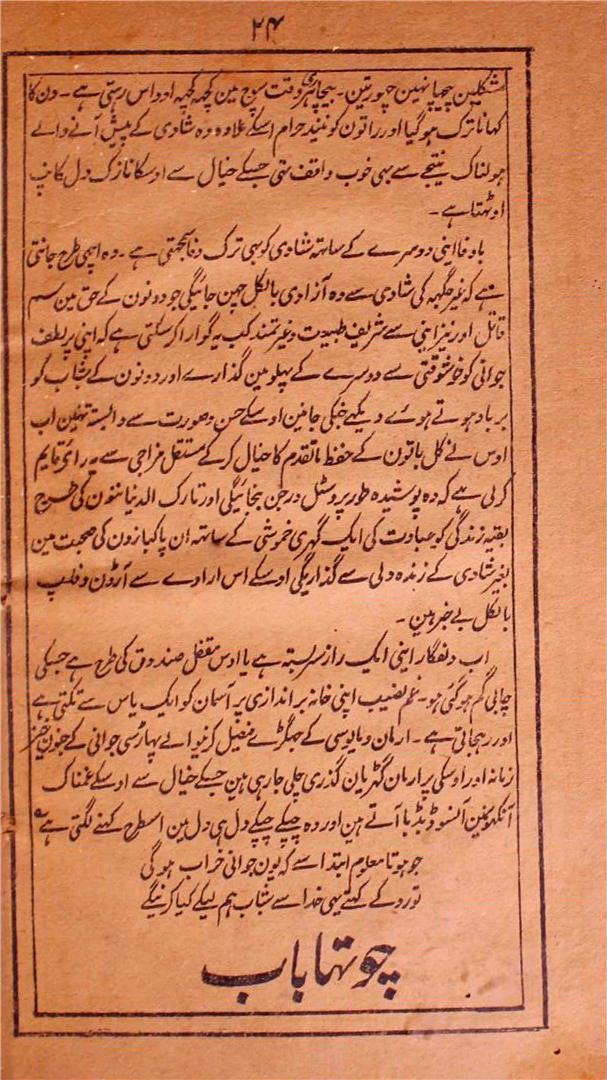 ۲۴
مشکلین چھپا نہین چھوڑتین۔ بیچاری ہر وقت سوچ مین کچھ کچھ اوداس رہتی ہے۔ دن کا
کہانا ترک ہوگیا اور راتون کو نیند حرام اسکے علاوہ وہ شادی کے پیش آنے والے
ہولناک نتیجے سے بہی خوب واقف تہی جسکے خیال سے اوسکا نازک دل کانپ
اوٹہتا ہے۔
باوفا اینی دوسرے کے ساتہہ شادی کو بہی ترک وفا سمجہتی ہے۔ وہ اچہی طرح جانتی
ہے کہ غیر جگہہ کی شادی سے وہ آزادی بالکل چہن جائیگی جو دونون کے حق مین سم
قاتل اور نیز اینی سے شریف طبیعت و غیرتمند کب یہ گوارا کر سکتی ہے کہ اپنی پر لطف
جوانی کو خوشوقتی سے دوسرے کے پہلو مین گذارے اور دونون کے شباب کو
برباد ہوتے ہوئے دیکہے جنکی جانین اوسکے حسن و صورت سے وابستہ تہین اب
اوس نے کل باتون کے حفظ ماتقدم کا خیال کر کے مستقل مزاجی سے یہ رائے قایم
کر لی ہے کہ وہ پوشیدہ طور پر وسٹل ورجن بنجائیگی اور تارک الدنیا ننون کی طرح
بقیہ زندگی کو عبادت کی ایک گہری خموشی کے ساتہہ ان پاکبازون کی صحبت مین
بغیر شادی کے زندہ دلی سے گذاریگی اوسکے اس ارادے سے آرڈن و فلپ
بالکل بے خبر ہین۔
اب دلفگار اینی ایک راز سربستہ ہے یا اوس مقفل صندوق کی طرح ہے جسکی
چابی گم ہوگئی ہو۔ غم نصیب اپنی خانہ براندازی پر آسمان کو ایک یاس سے تکتی ہے
اور رہجاتی ہے۔ ارمان و مایوسی کے جہگڑے فیصل کرنیوالے پہاڑسی جوانی کے جنون خیز
زمانہ اور اوسکی پر ارمان گہڑیان گذری چلی جا رہی ہین جسکے خیال سے اوسکے غمناک
آنکہونمین آنسو ڈبڈبا آتے ہین اور وہ چپکے چپکے دل ہی دل مین اسطرح کہنے لگتی ہے
جو ہوتا معلوم ابتدا سے کہ یون جوانی خراب ہوگی
تو رو کے کہتے یہی خدا سے شباب ہم لیکے کیا کرینگے
چوتہا باب